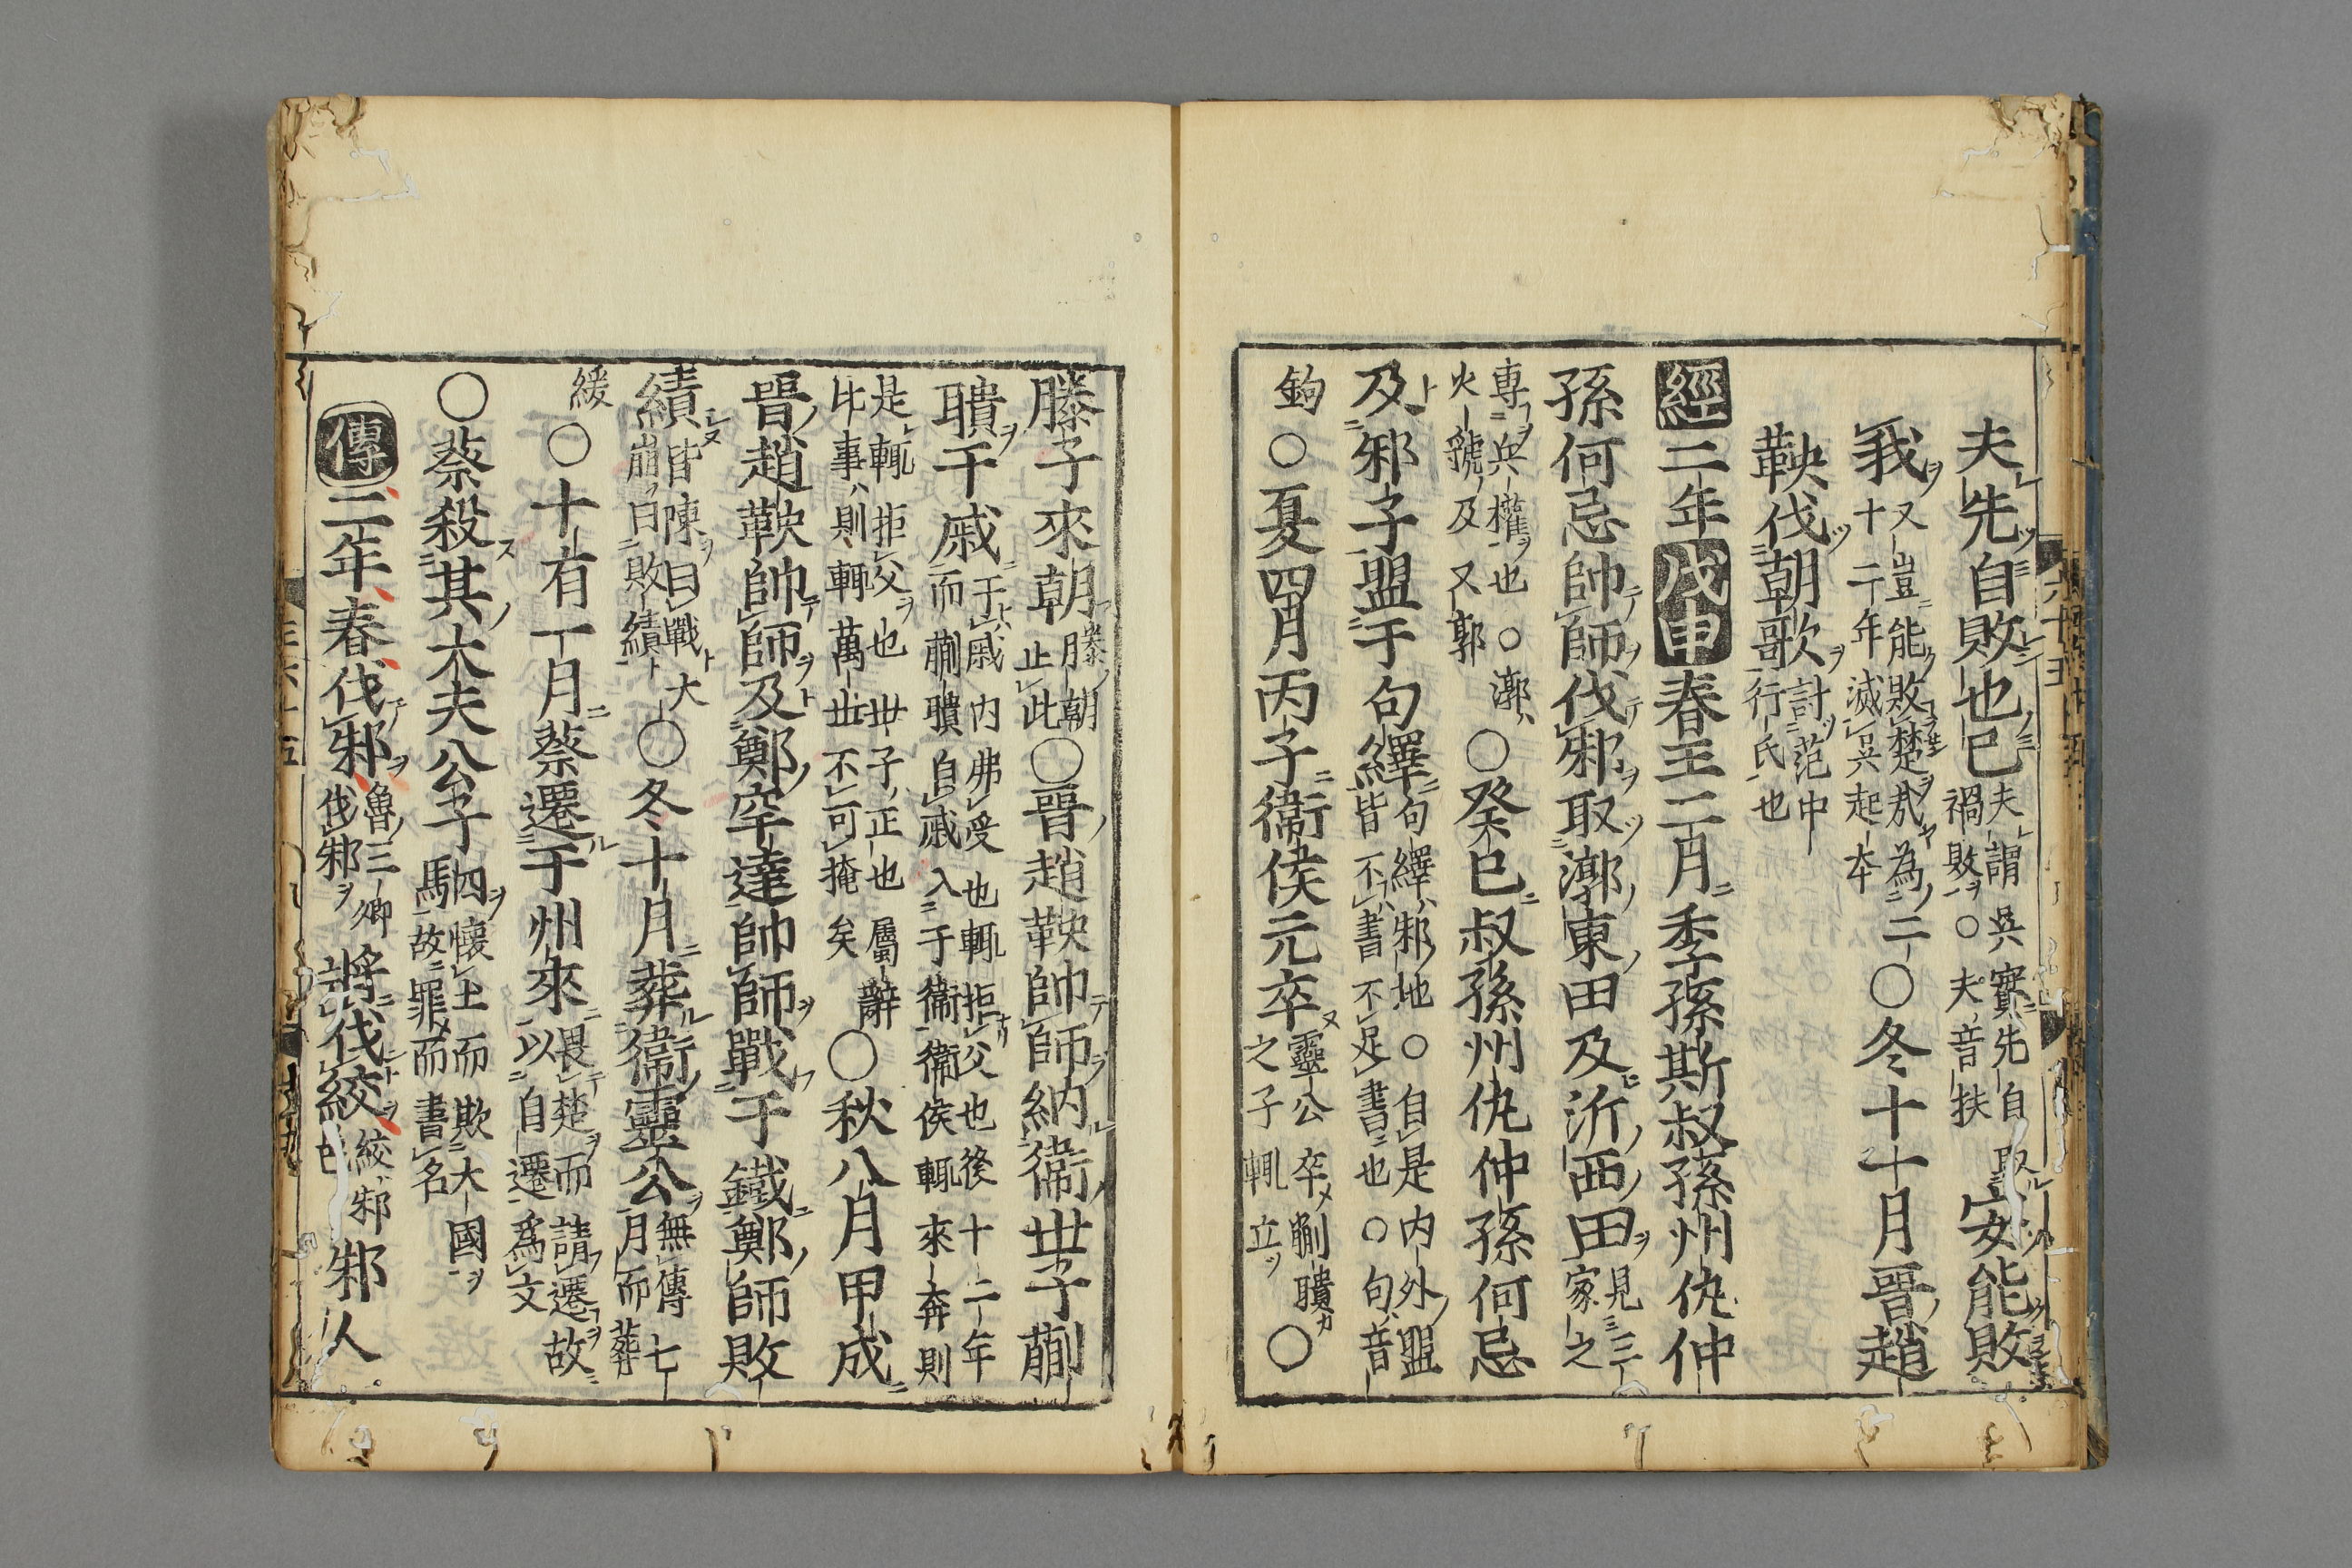 夫先自敗也已夫謂吳實先自取禍敗○夫音扶安能敗
我又豈能敗楚㢤為二十二年滅吳起本○冬十十月晉趙
鞅伐朝歌討范中行氏也
經二年戊申春王二月季孫斯叔孫州仇仲
孫何忌帥師伐邾取漷東田及沂西田見三家之
專兵權也○漷火虢及又郭○癸巳叔孫州仇仲孫何忌
及邾子盟于句繹句繹邾地○自是内外盟皆不書不足書也○句音
鉤○夏四月丙子衞侯元卒靈公卒蒯聵之子輒立○
滕子來朝滕朝止此○晉趙鞅帥師納衞世子蒯
聵于戚于戚内弗受也輒拒父也後十二年而蒯聵自戚入于衞衞侯輒來奔則
是輒拒父也世子正也屬辭比事則輒萬世不可掩矣○秋八月甲戌
晉趙鞅帥師及鄭罕達帥師戰于鐵鄭師敗
績皆陳曰戰大崩曰敗績○冬十月葬衞靈公無傳七月而葬
緩○十有一月蔡遷于州來畏楚而請遷故以自遷爲文
○蔡殺其大夫公子駟懷土而欺大國故罪而書名
傳二年春伐邾魯三卿伐邾將伐絞絞邾邑邾人